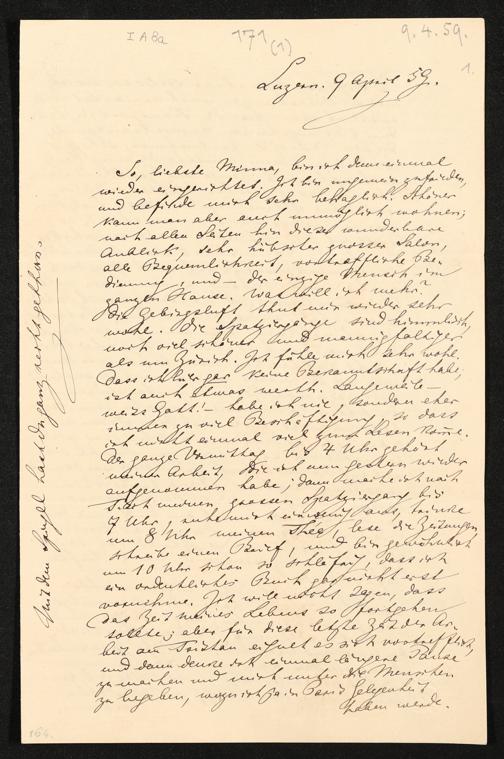 I A 8a
171 (1)
9. 4. 59.
1.
Luzern. 9 April 59.
So, liebste Minna, bin ich denn einmal
wieder eingerichtet. Ich bin ungemein zufrieden,
und befinde mich sehr behaglich. Schöner
kann man aber auch unmöglich wohnen;
nach allen Seiten hin diese wunderbare
Anblick, sehr hübscher grosser Salon,
alle Bequemlichkeit, vortreffliche Be-
dienung, und – der einzige Mensch im
ganzen Hause. Was will ich mehr?
Die Gebirgsluft thut mir wieder sehr
wohl. Die Spatziergänge sind himmlisch,
noch viel schöner und mannigfaltiger
als um Zürich. Ich fühle mich sehr wohl.
Dass ich hier gar keine Bekanntschaft habe,
ist auch etwas werth. Langeweile –
weiss Gott! – habe ich nie, sondern eher
immer zu viel Beschäftigung, so dass
ich nicht einmal viel zum Lesen komme.
Der ganze Vormittag bis 4 Uhr gehört
meiner Arbeit, die ich nun gestern wieder
aufgenommen habe; dann mache ich nach
Tisch meinen grossen Spatziergang bis
7 Uhr, ruhe mich ein wenig aus, trinke
um 8 Uhr meinen Thee, lese die Zeitungen,
schreibe einen Brief, und bin gewöhnlich
um 10 Uhr schon so schläfrig, dass ich
ein ordentliches Buch gar nicht erst
vornehme. Ich will nicht sagen, dass
das Zeit meines Lebens so fortgehen
sollte; aber für diese letzte Zeit der Ar-
beit am Tristan eignet es sich vortrefflich,
und dann denke ich einmal längere Pause
zu machen und mich unter die Menschen
zu begeben, wozu ich ja in Paris Gelegenheit
haben werde.
Mit dem Spiegel hast Du ganz recht gethan.
164.